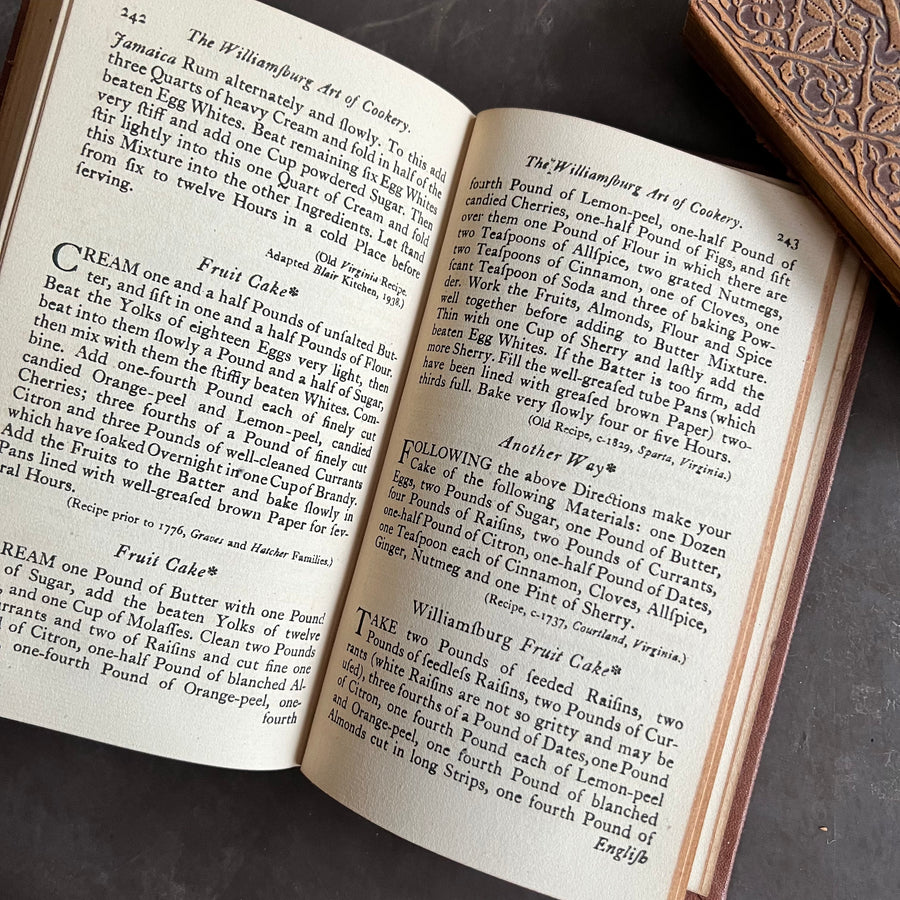 242
The Williamſburg Art of Cookery.
Jamaica Rum alternately and ſlowly. To this add
three Quarts of heavy Cream and fold in half of the
beaten Egg Whites. Beat remaining ſix Egg Whites
very ſtiff and add one Cup powdered Sugar. Then
ſtir lightly into this one Quart of Cream and fold
this Mixture into the other Ingredients. Let ſtand
from ſix to twelve Hours in a cold Place before
ſerving.
(Old Virginia Recipe.
Adapted Blair Kitchen, 1938.)
Fruit Cake*
CREAM one and a half Pounds of unſalted But-
ter, and ſift in one and a half Pounds of Flour.
Beat the Yolks of eighteen Eggs very light, then
beat into them ſlowly a Pound and a half of Sugar,
then mix with them the ſtiffly beaten Whites. Com-
bine. Add one-fourth Pound each of finely cut
candied Orange-peel and Lemon-peel, candied
Cherries; three fourths of a Pound of finely cut
Citron and three Pounds of well-cleaned Currants
which have ſoaked Overnight in one Cup of Brandy.
Add the Fruits to the Batter and bake ſlowly in
Pans lined with well-greaſed brown Paper for ſev-
ral Hours.
(Recipe prior to 1776, Graves and Hatcher Families.)
Fruit Cake*
REAM one Pound of Butter with one Pound
of Sugar, add the beaten Yolks of twelve
, and one Cup of Molaſſes. Clean two Pounds
urrants and two of Raiſins and cut fine one
of Citron, one-half Pound of blanched Al-
one-fourth Pound of Orange-peel, one-
fourth
The Williamſburg Art of Cookery.
243
fourth Pound of Lemon-peel, one-half Pound of
candied Cherries, one-half Pound of Figs, and ſift
over them one Pound of Flour in which there are
two Teaſpoons of Allſpice, two grated Nutmegs,
two Teaſpoons of Cinnamon, one of Cloves, one
ſcant Teaſpoon of Soda and three of baking Pow-
der. Work the Fruits, Almonds, Flour and Spice
well together before adding to Butter Mixture.
Thin with one Cup of Sherry and laſtly add the
beaten Egg Whites. If the Batter is too firm, add
more Sherry. Fill the well-greaſed tube Pans (which
have been lined with greaſed brown Paper) two-
thirds full. Bake very ſlowly four or five Hours.
(Old Recipe, c-1829, Sparta, Virginia.)
Another Way*
FOLLOWING the above Directions make your
Cake of the following Materials: one Dozen
Eggs, two Pounds of Sugar, one Pound of Butter,
four Pounds of Raiſins, two Pounds of Currants,
one-half Pound of Citron, one-half Pound of Dates,
one Teaſpoon each of Cinnamon, Cloves, Allſpice,
Ginger, Nutmeg and one Pint of Sherry.
(Recipe, c-1737, Courtland, Virginia.)
Williamſburg Fruit Cake*
TAKE two Pounds of ſeeded Raiſins, two
Pounds of ſeedleſs Raiſins, two Pounds of Cur-
rants (white Raiſins are not ſo gritty and may be
uſed), three fourths of a Pound of Dates, one Pound
of Citron, one fourth Pound each of Lemon-peel
and Orange-peel, one fourth Pound of blanched
Almonds cut in long Strips, one fourth Pound of
Engliſh